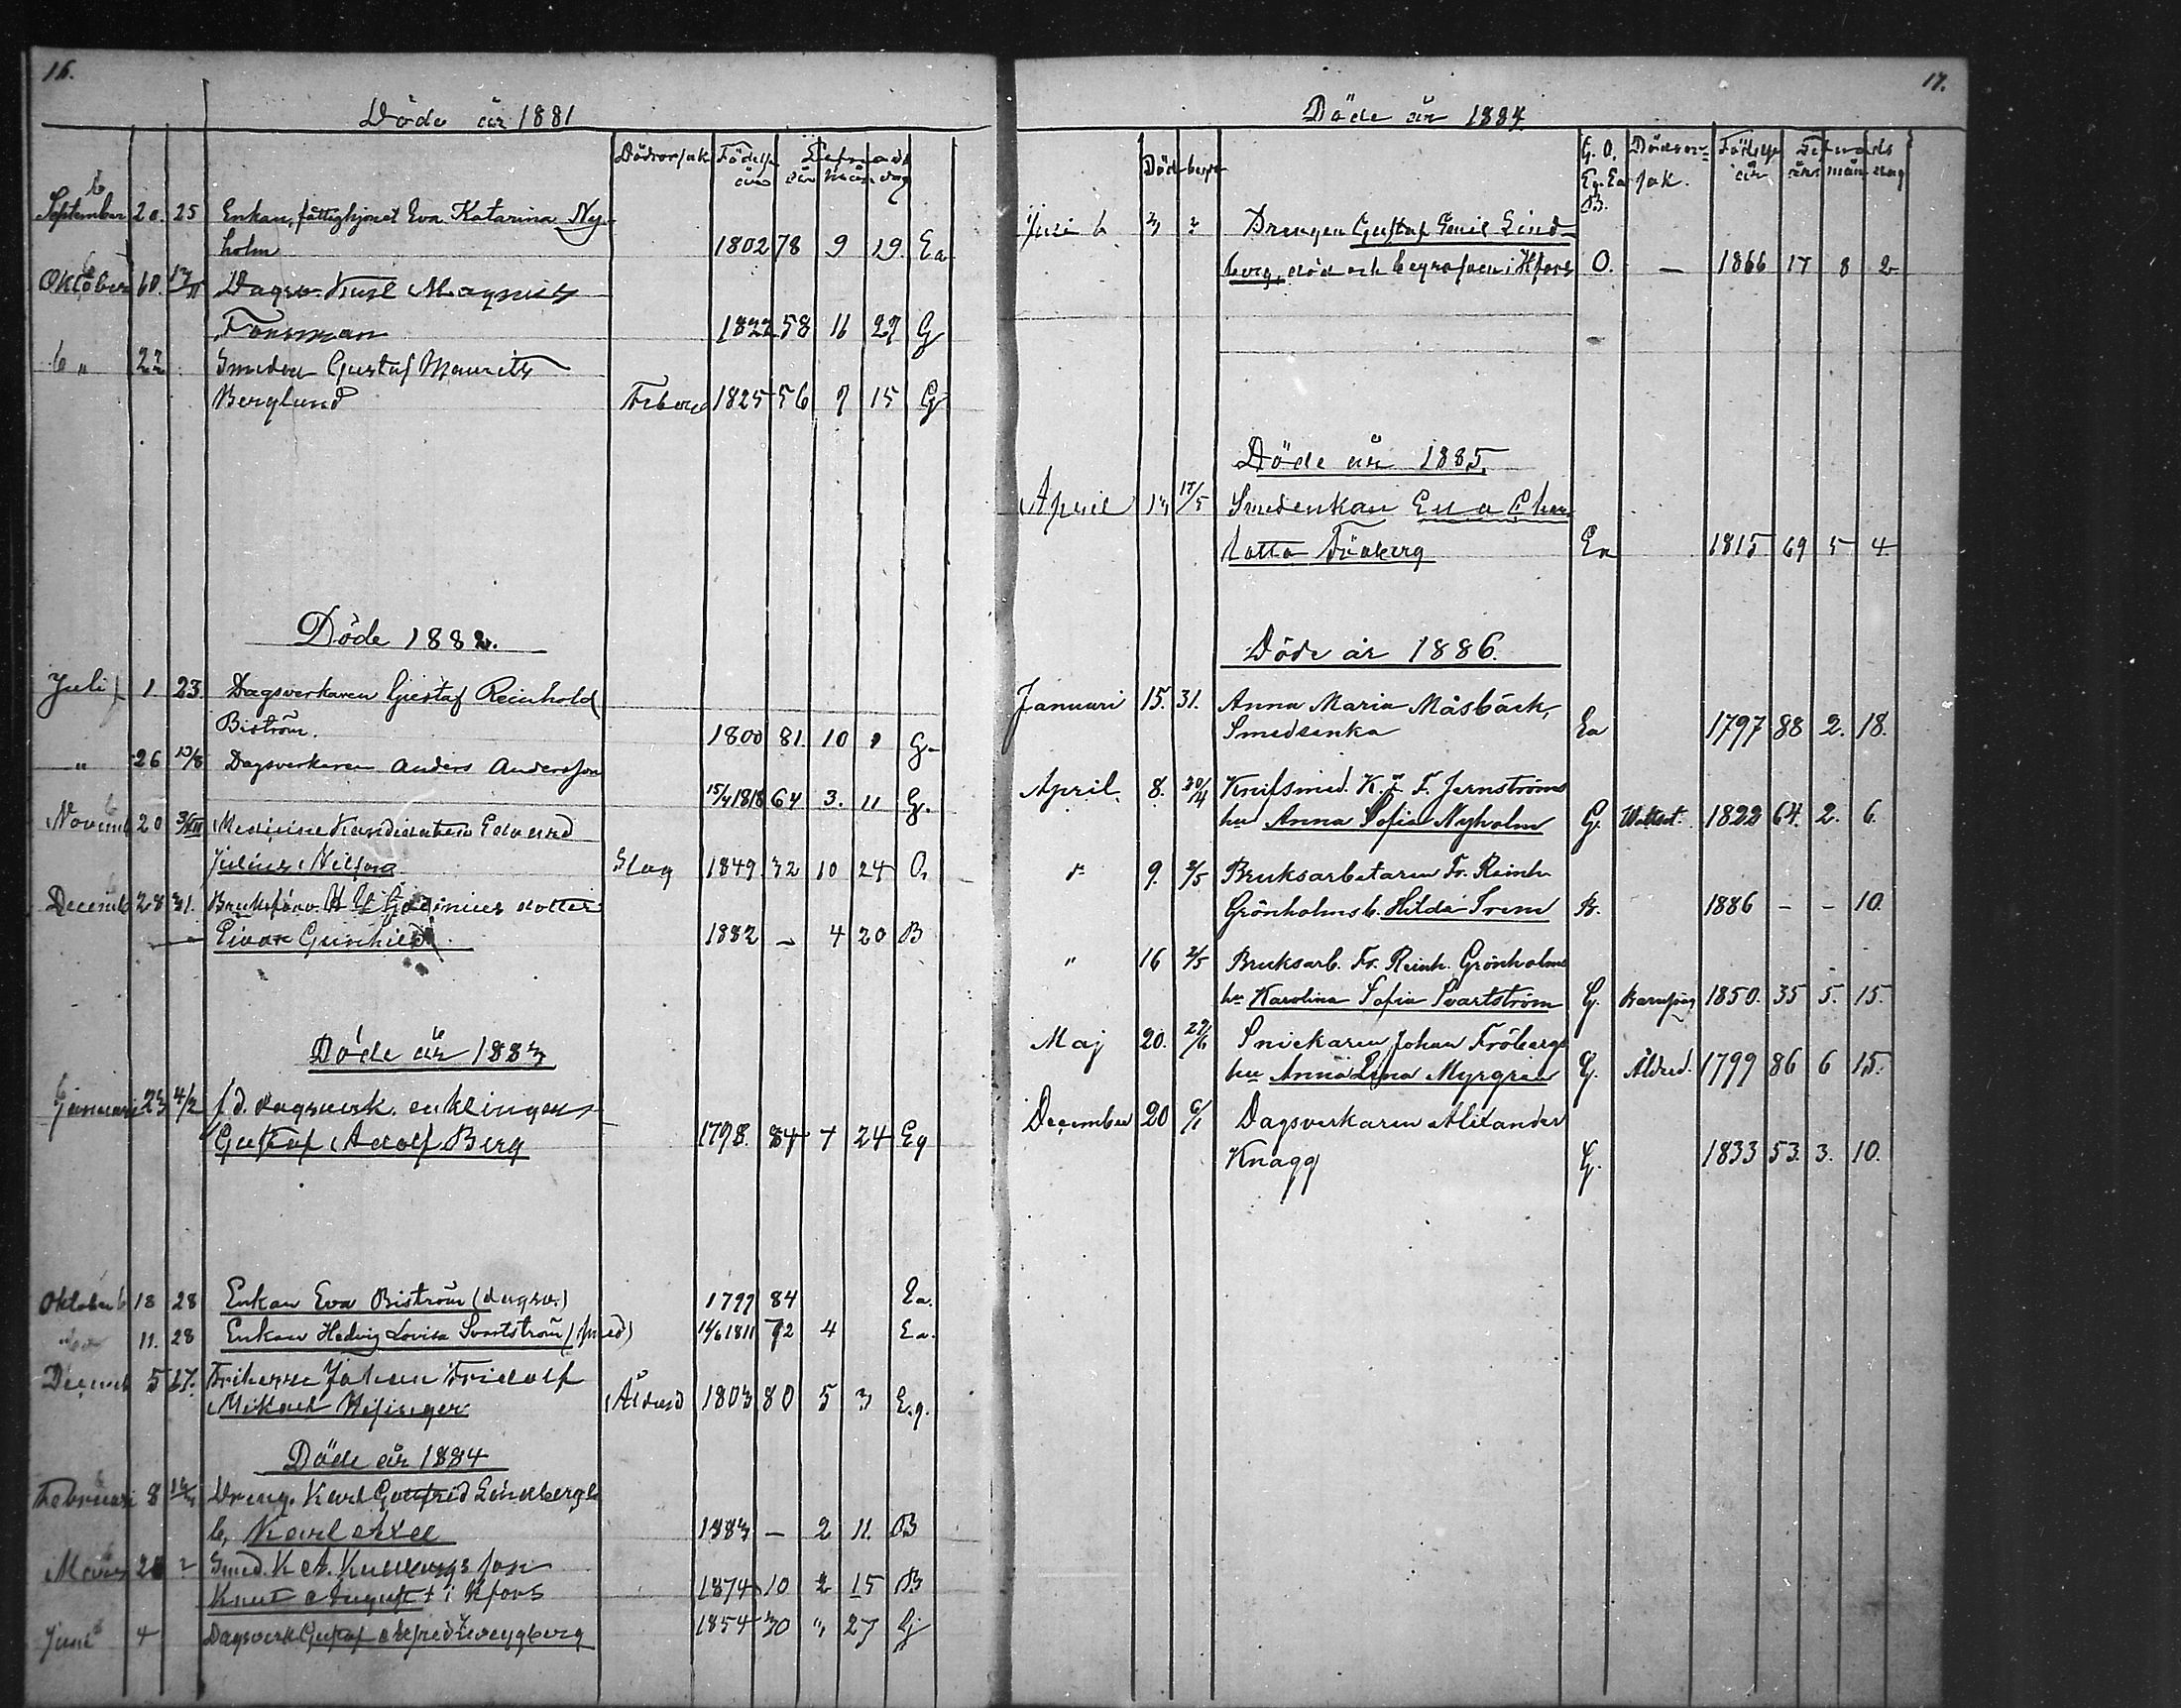 16.
Döde år 1881
Dödsorsak Födelse år Lefnads år mån dag
September 20. 25 Enkan, fattighjonet Eva Katarina Ny-
holm 1802 78 9 19. Ea
Oktober 10. Dagsv. Karl Magnus
Forsman 1822 58 11 27 G
" 22 Smeden Gustaf Maurits
Berglund 1825 56 7 15 G
Döde 1882.
Juli 1. 23. Dagsverkaren Gustaf Reinhold
Biström. 1800 81. 10 G.
" 26 13/8 Dagsverkaren Anders Andersson
15/4 1818 64 3. 11 G.
Novemb 20 3/XII Medicine Kandidaten Edvard
Julius Nilsson Slag 1849 32 10 24 O.
Decemb 28 31. Bruksförv. dotter
Gunhild 1882 – 4 20 B
Döde år 1883
Januari 23 4/2 f.d. dagsverk. enklingen
Gustaf Adolf Berg 1798. 84 7 24 Eg
Oktober 18 28 Enkan Eva Biström (dagsv.) 1799 84 Ea.
11. 28 Enkan Hedvig Lovisa Svartström (smed) 14/6 1811 72 4 Ea.
Decemb 5 27. Friherre Johan Fridolf
Mikael Hisinger Ålderd 1803 80 5 3 E.g.
Döde år 1884
Februari 8 Dreng. Karl Gottfrid Lindbergs
b. Karl Axel 1883 – 2 11. B
Mars 28 ? Smed. K. A. son
Knut August † i Hfors 1874 10 2 15 B
Juni 4 Dagsverk Gustaf Alfred Ljungberg 1854 30 " 27 G
17.
Döde år 1884
Död begr G. O. Eg. Ea B. Dödsorsak. Födelse år Lefnads års mån dag
Juni 3 ? Drengen Gustaf Emil Lind-
berg, död och begrafven i Hfors O. – 1866 17 8 2
Döde år 1885.
April 13 17/5 Smedenkan Eva Char
lotta Fröberg Ea 1815 69 5 4
Döde år 1886.
Januari 15. 31. Anna Maria Måsbäck,
Smedsenka Ea 1797 88 2. 18.
April 8. 30/4 Knifsmed. K. F. Jernströms
hu Anna Sofia Nyholm G. Vattsot. 1822 64. 2. 6.
" 9. 2/5 Bruksarbetaren Fr. Reinh.
Grönholms b. Hilda Irene B. 1886 – – 10.
" 16 2/5 Bruksarb. Fr. Reinh. Grönholms
hu Karolina Sofia Svartström G. Barnsäng 1850. 35 5. 15.
Maj 20. 27/6 Snickaren Johan Fröbergs
hu Anna Lena Myrgren G. Ålderd. 1799 86 6 15.
December 20 6/1 Dagsverkaren Alexander
Knagg G. 1833 53. 3. 10.